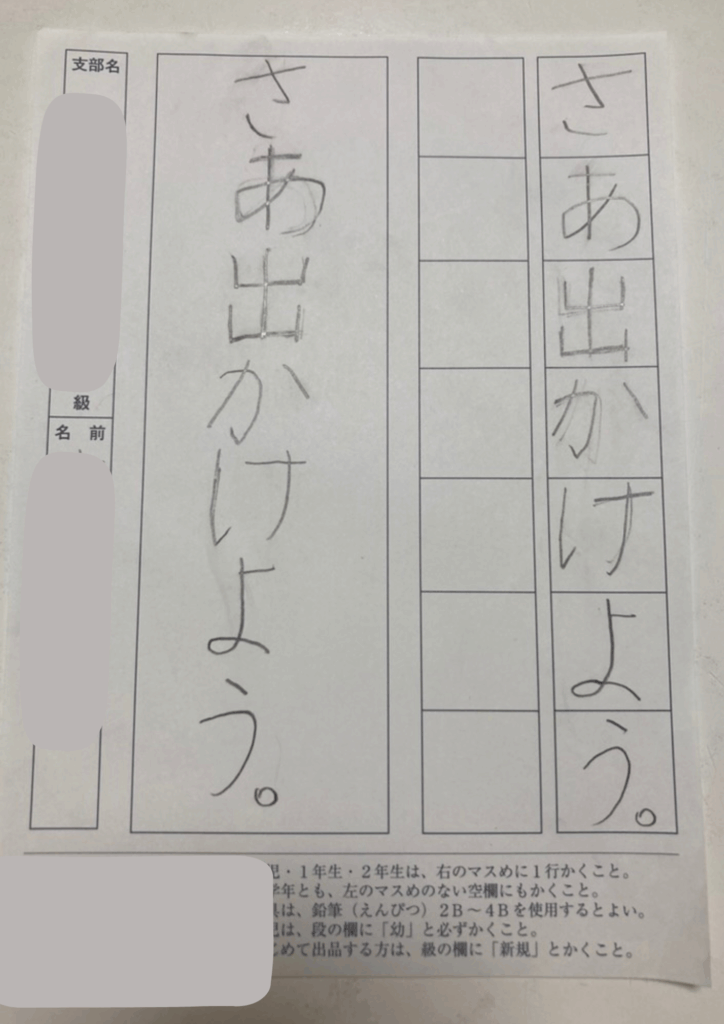 さあ出かけよう。
さあ出かけよう。
支部名
級
名前
児・1年生・2年生は、右のマスめに1行かくこと。
学年とも、左のマスめのない空欄にもかくこと。
具は、鉛筆（えんぴつ）2B～4Bを使用するとよい。
児は、段の欄に「幼」と必ずかくこと。
じめて出品する方は、級の欄に「新規」とかくこと。